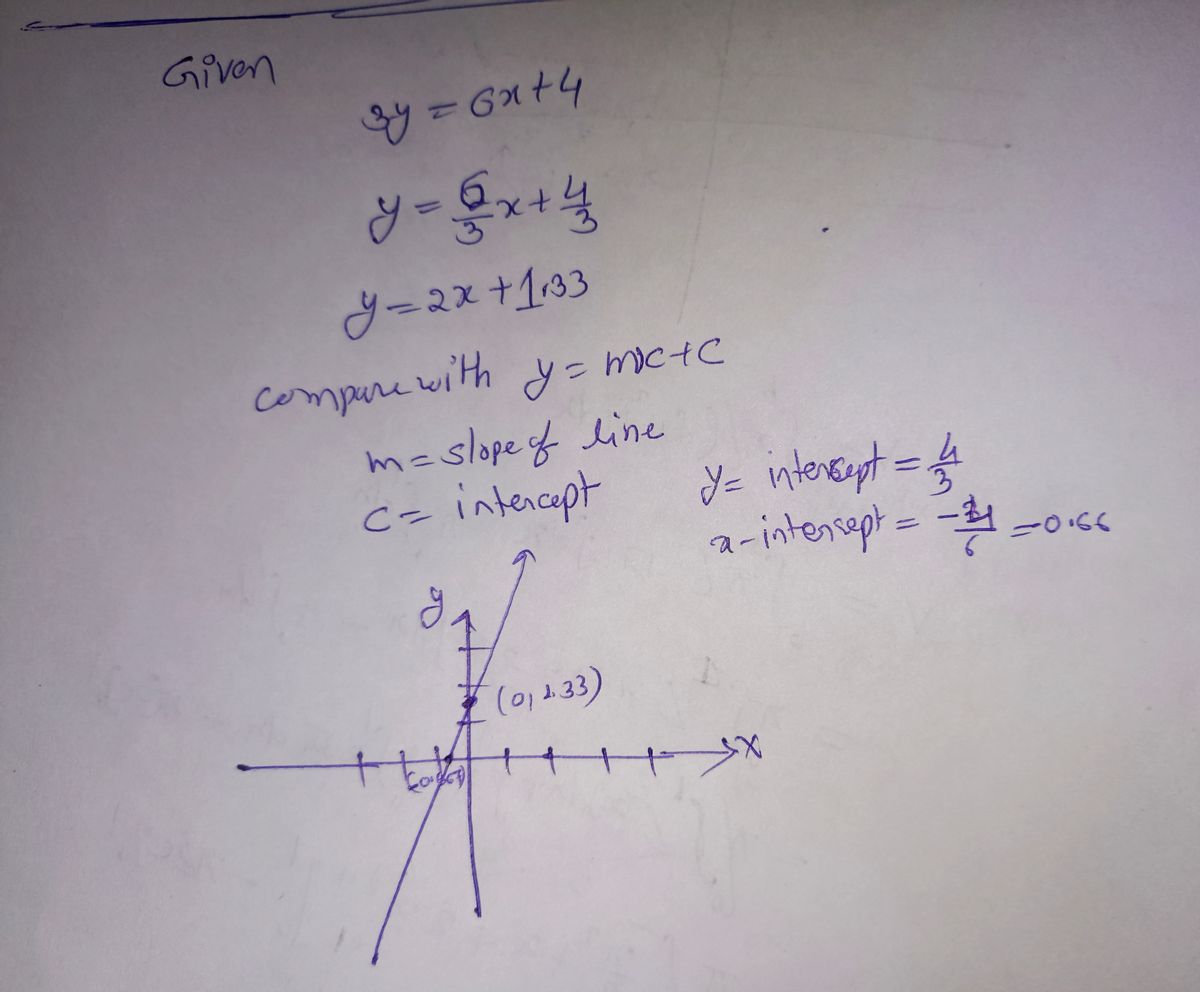 Given
3y = 6x+4
y = 6/3 x + 4/3
y = 2x + 1.33
compare with y = mx+c
m = slope of line
c = intercept
y = intersept = 4/3
x-intersept = -4/6 = -0.66
y
(0, 1.33)
X